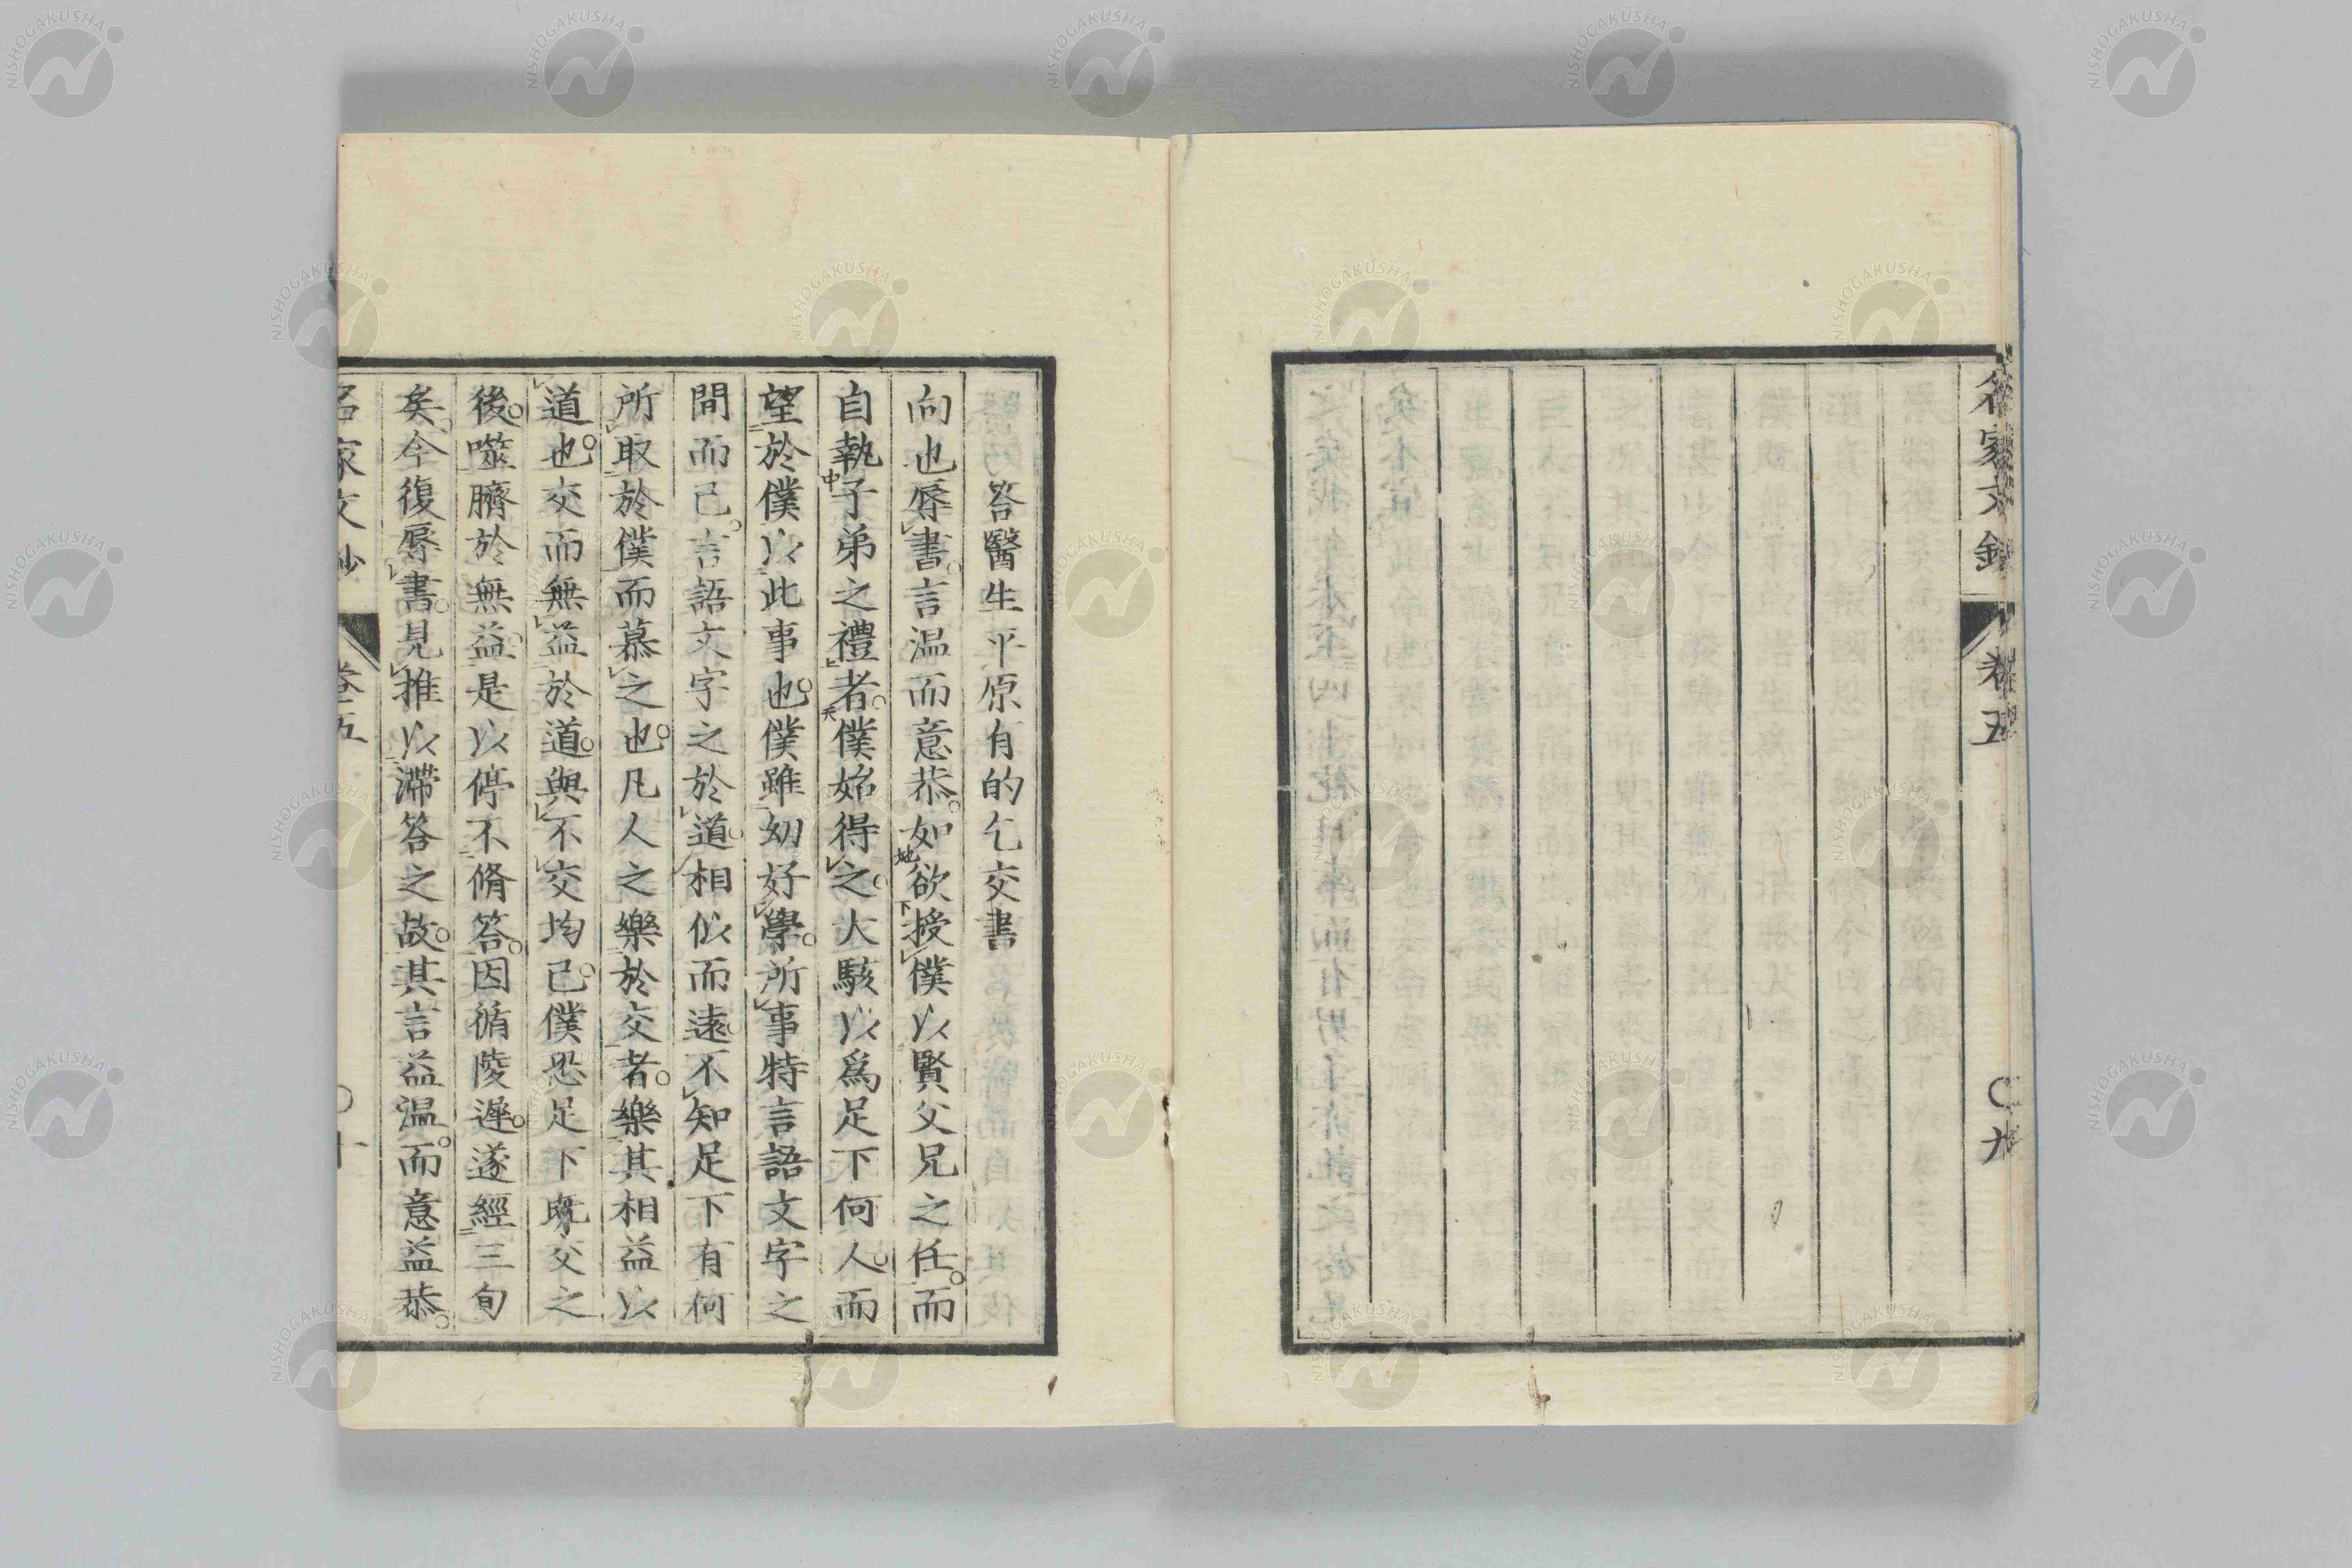 名家文鈔
卷五
〇九
答醫生平原有的乞交書
向也辱書。言温而意恭。如欲授僕以賢父兄之任。而
自執子弟之禮者。僕始得之。大駭以爲足下何人。而
望於僕以此事也。僕雖幼好學。所事特言語文字之
間而已。言語文字之於道。相似而遠。不知足下有何
所取於僕而慕之也。凡人之樂於交者。樂其相益以
道也。交而無益於道。與不交均已。僕恐足下既交之
後。噬臍於無益。是以停不脩答。因循陵遲。遂經三旬
矣。今復辱書。見推以滯答之故。其言益温。而意益恭。
名家文鈔
卷五
〇十
NISHOGAKUSHA